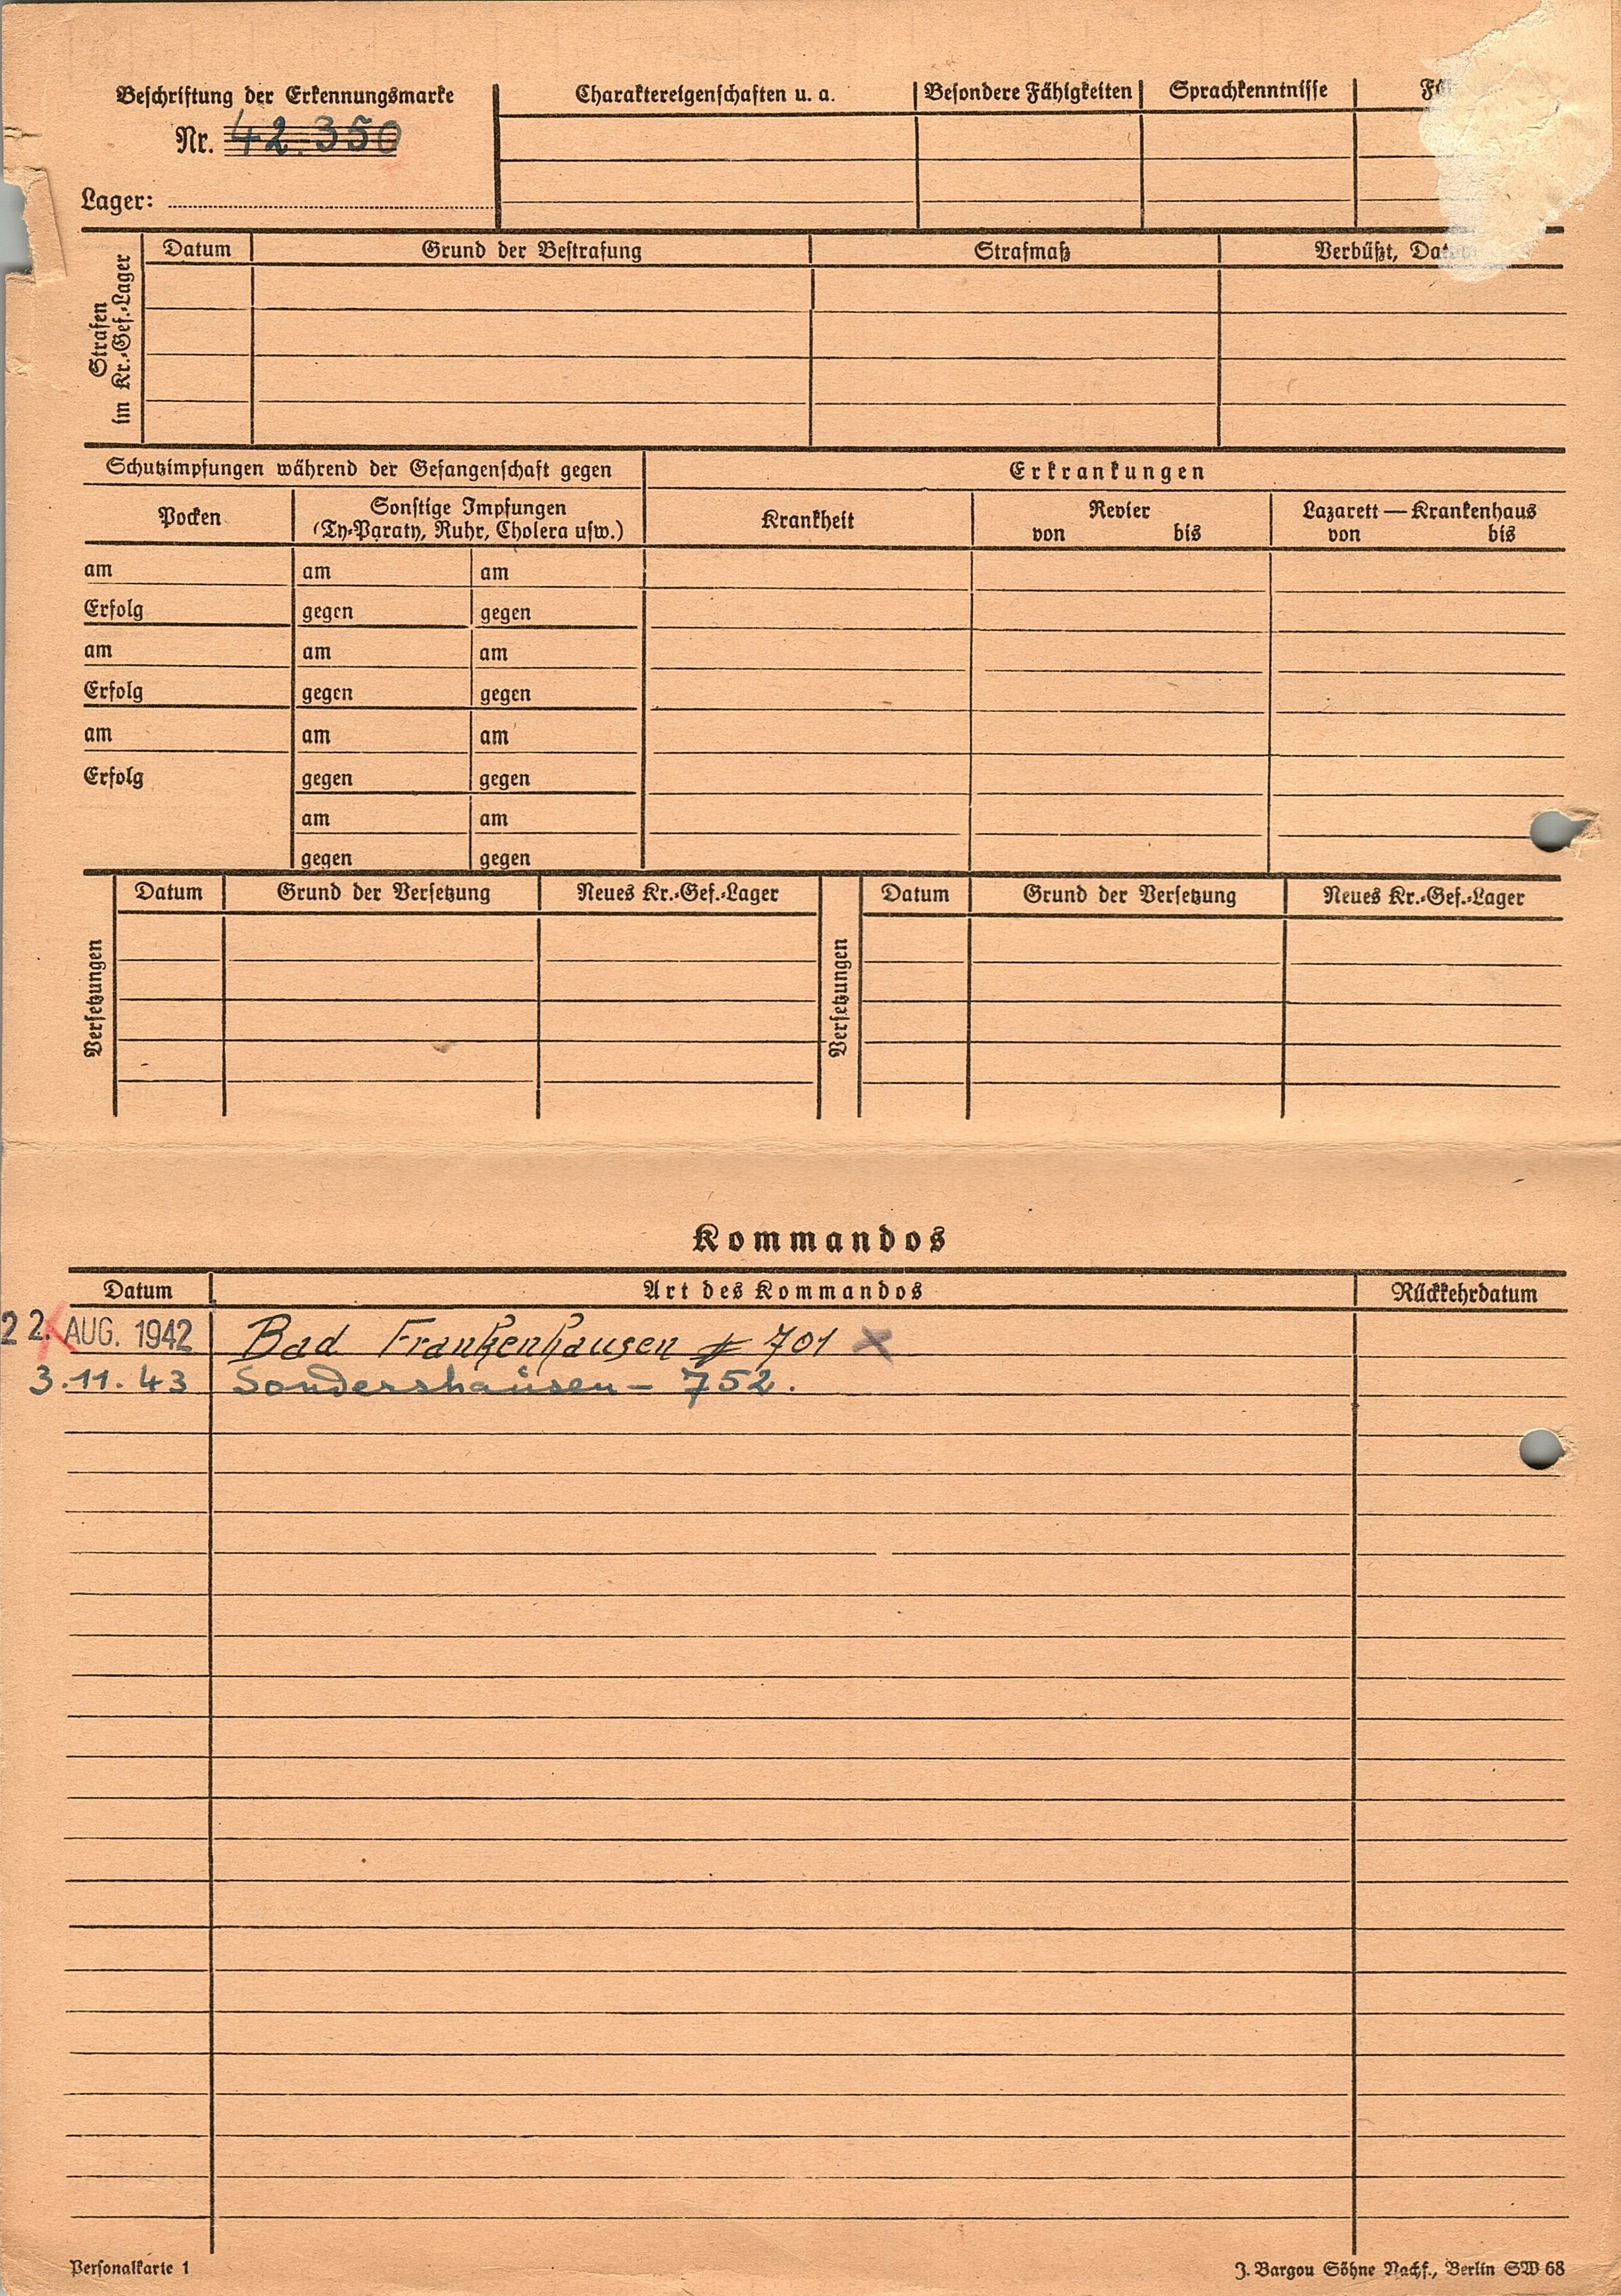 Beschriftung der Erkennungsmarke
Nr. 42.350
Lager:
Charaktereigenschaften u. a.
Besondere Fähigkeiten
Sprachkenntnisse
Strafen im Kr.-Gef.-Lager
Datum
Grund der Bestrafung
Strafmaß
Verbüßt,
Schutzimpfungen während der Gefangenschaft gegen
Erkrankungen
Pocken
Sonstige Impfungen
(Ty-Paraty, Ruhr, Cholera usw.)
Krankheit
Revier
von bis
Lazarett — Krankenhaus
von bis
am am am
Erfolg gegen gegen
am am am
Erfolg gegen gegen
am am am
Erfolg gegen gegen
am am
gegen gegen
Versetzungen
Datum Grund der Versetzung Neues Kr.-Gef.-Lager
Versetzungen
Datum Grund der Versetzung Neues Kr.-Gef.-Lager
Kommandos
Datum Art des Kommandos Rückkehrdatum
22. AUG. 1942 Bad Frankenhausen 701 x
3.11.43 Sondershausen - 752.
Personalkarte 1
J. Bargou Söhne Nachf., Berlin SW 68